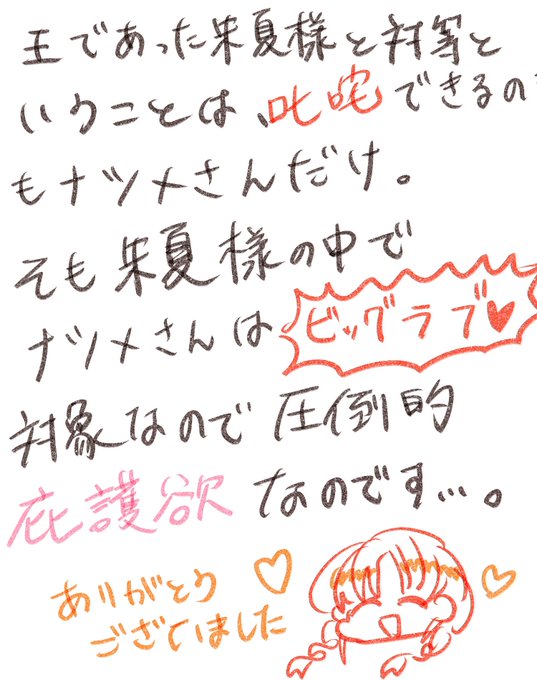 王であった朱夏様と対等と
いうことは、叱咤できるの
もナツメさんだけ。
そも朱夏様の中で
ナツメさんは ビッグラブ♥
対象なので圧倒的
庇護欲 なのです…。
ありがとう
ございました